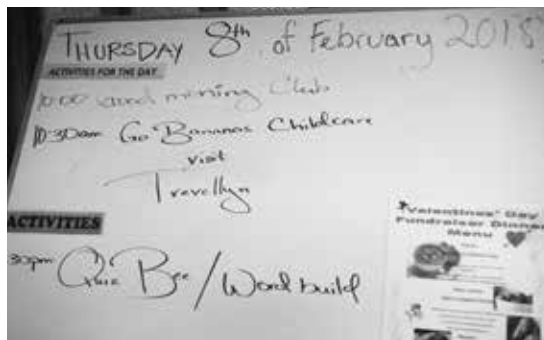 THURSDAY 8th of February 2018
ACTIVITIES FOR THE DAY
10:00 Good morning Club
10:30am Go Bananas Childcare
visit
Travellyn
ACTIVITIES
30pm Quiz Bee / Word build
Valentines' Day
Fundraiser Dinner
Menu